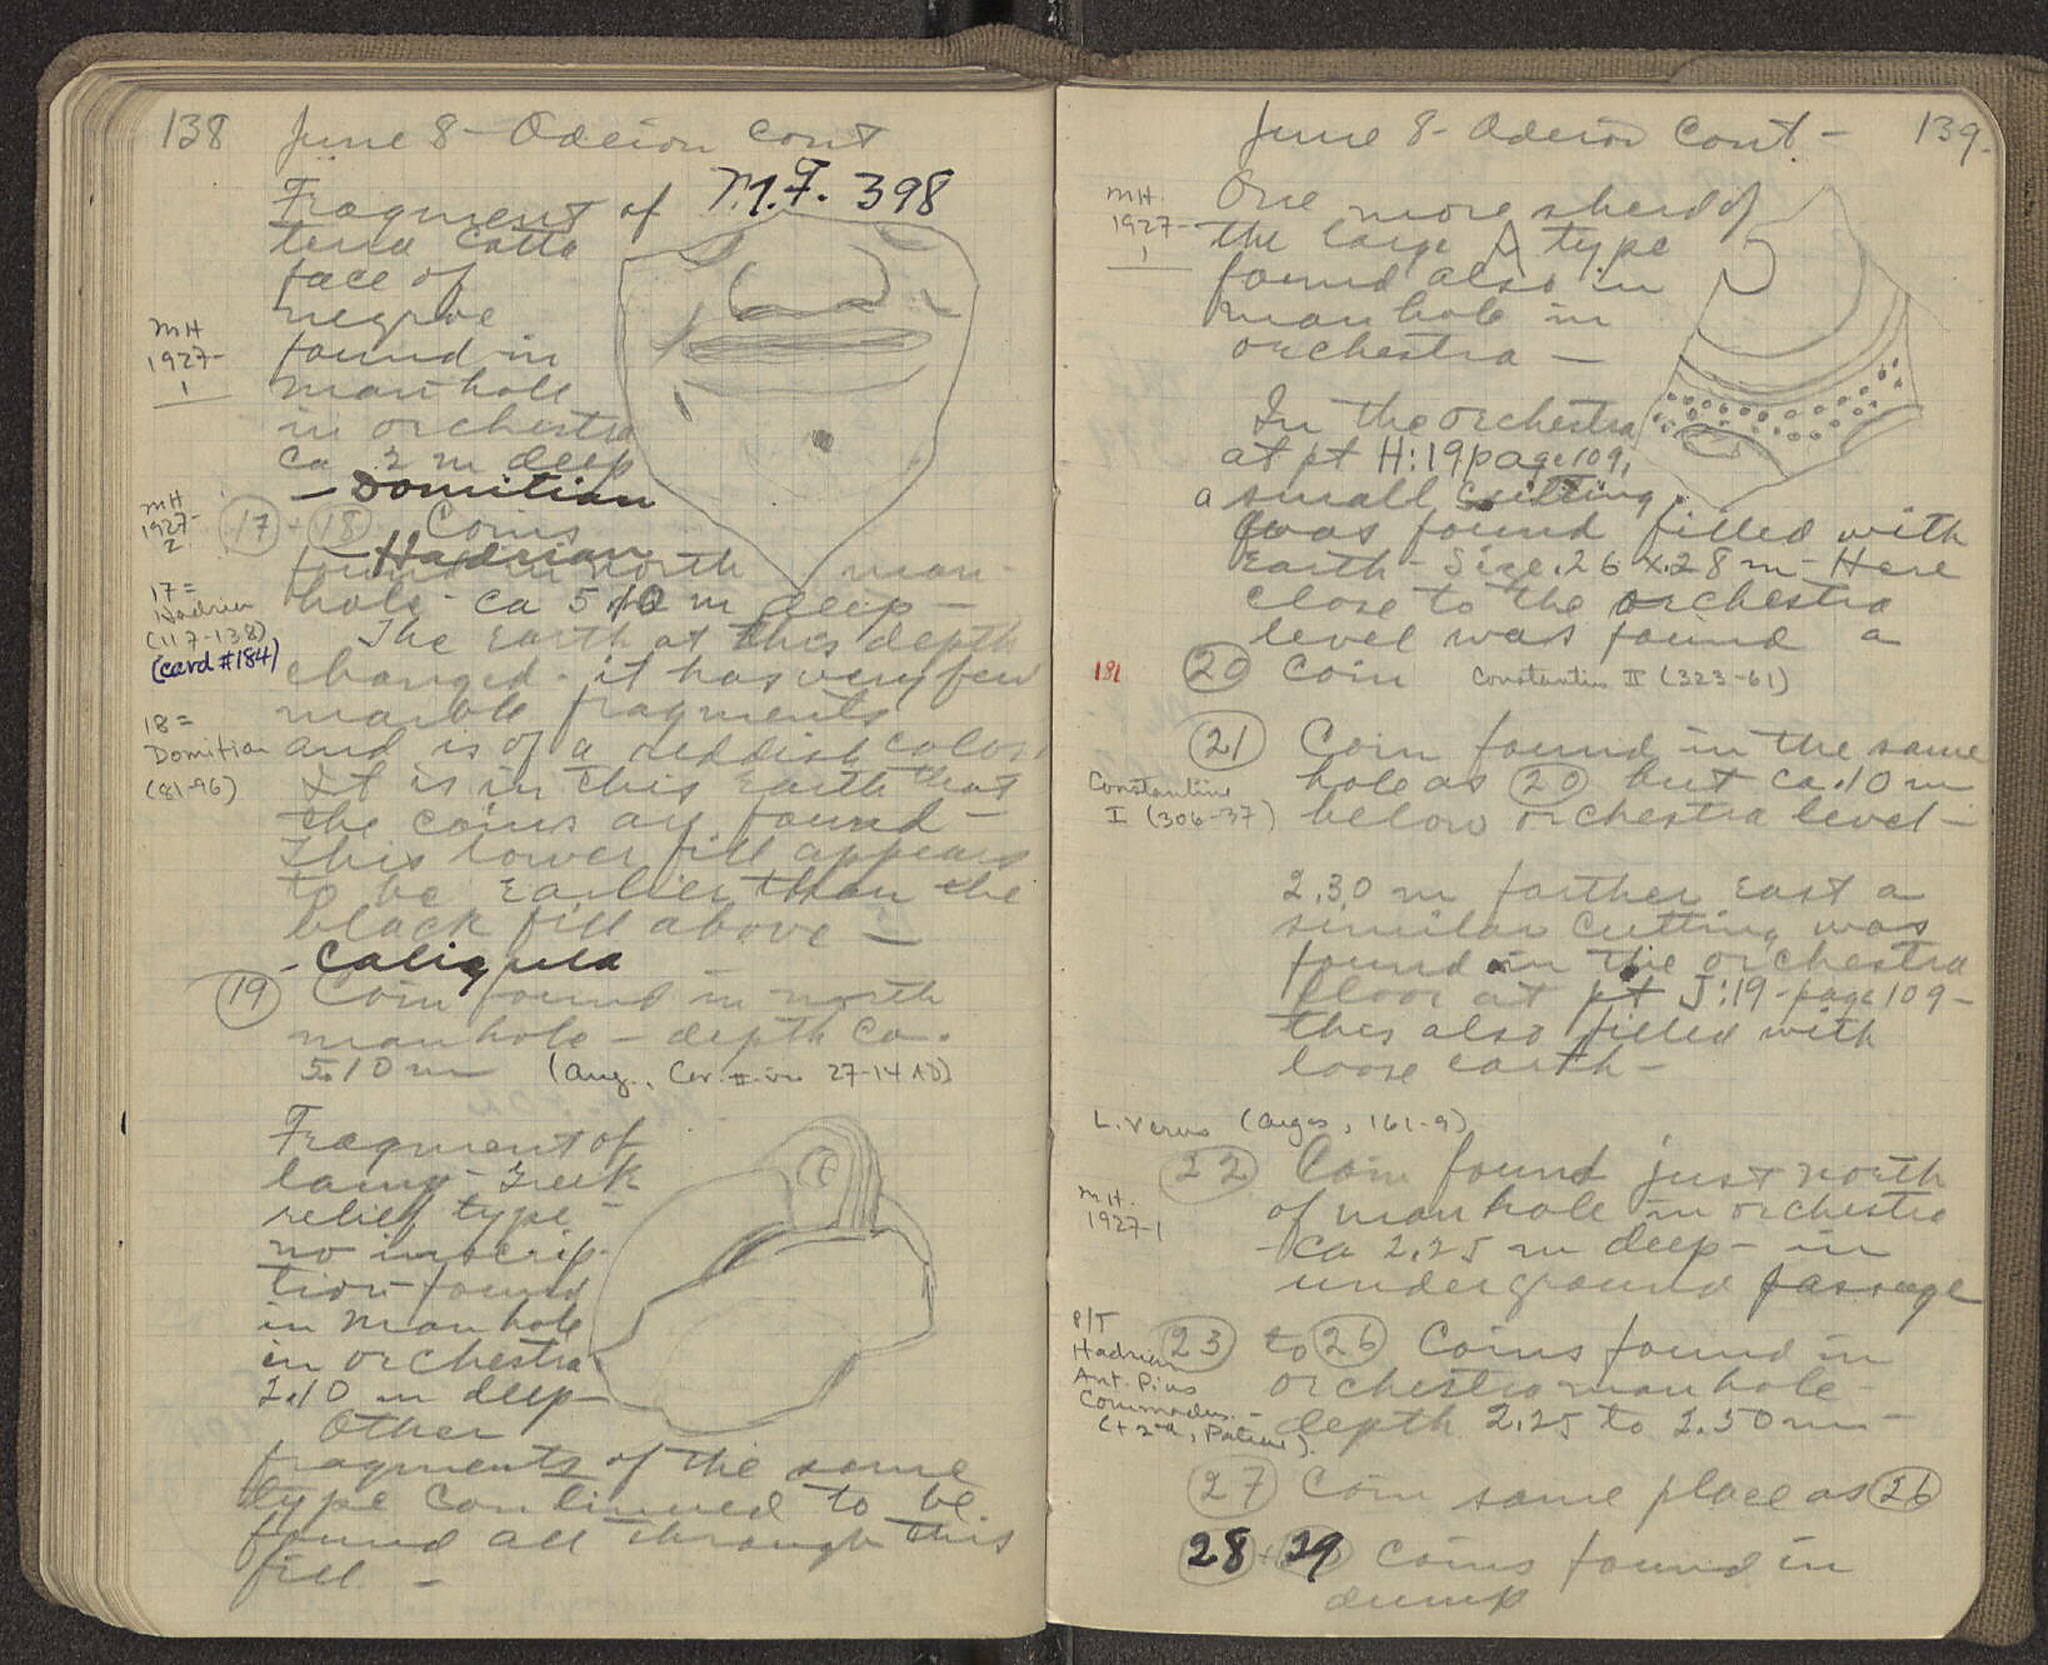 138 June 8 - Odeion cont
M.F. 398
Fragment of
terra cotta
face of
negroe
found in
man hole
in orchestra
ca 2 m deep
MH
1927-
1
- Domitian
MH
1927-
2
17 + 18 Coins
Hadrian
found in north man-
hole - ca 5.10 m deep -
17 =
Hadrian
(117-138)
(card #184)
The earth at this depth
changed - it has very few
marble fragments
and is of a reddish color.
18 =
Domitian
(81-96)
It is in this earth that
the coins are found -
This lower fill appears
to be earlier than the
black fill above -
- Caligula
19 Coin found in north
man hole - depth ca.
5.10 m (Aug., Cor. II vir 27-14 AD)
Fragment of
lamp - Greek
relief type -
no inscrip-
tion - found
in man hole
in orchestra
2.10 m deep -
Other
fragments of the same
type continued to be
found all through this
fill -
June 8 - Odeion Cont. - 139.
MH.
1927-
1
One more sherd of
the large type
found also in
man hole in
orchestra -
In the orchestra
at pt H:19 page 109,
a small cutting
was found filled with
Earth - Size .26 x .28 m - Here
close to the orchestra
level was found a
181 20 Coin Constantius II (323-61)
21 Coin found in the same
hole as 20 but ca .10 m
below orchestra level -
Constantine
I (306-37)
2.30 m farther east a
similar cutting was
found in the orchestra
floor at pt J:19 - page 109 -
this also filled with
loose earth -
L. Verus (Argos, 161-9)
22 Coin found just north
of man hole in orchestra
- ca 2.25 m deep - in
underground passage
MH.
1927-1
P/T
Hadrian
Ant. Pius
Commodus -
(+ 2nd, Patras).
23 to 26 Coins found in
orchestra man hole -
depth 2.25 to 2.50 m -
27 Coin same place as 26
28 + 29 Coins found in
dump